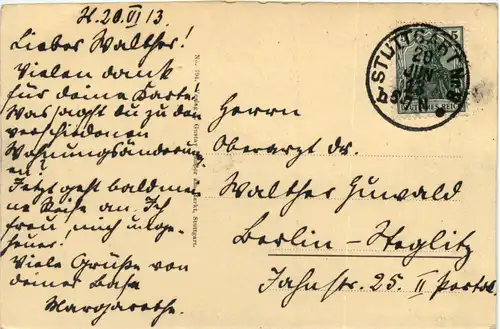 St. 20. VI 13.
Lieber Walther!
Vielen dank
für deine Karte.
Was sagst du zu den
verschiedenen
Wohnungsänderung
en?
Jetzt geht bald mei
ne Reise an. Ich
freu mich unge-
heuer!
Viele Grüße von
deiner Base
Margarethe.
Markt, Stuttgart.
STUTTGART
20
JUN
13
N
5
DEUTSCHES REICH
Herrn
Oberarzt dr.
Walther
Berlin - Steglitz
Jahnstr. 25. II Portal